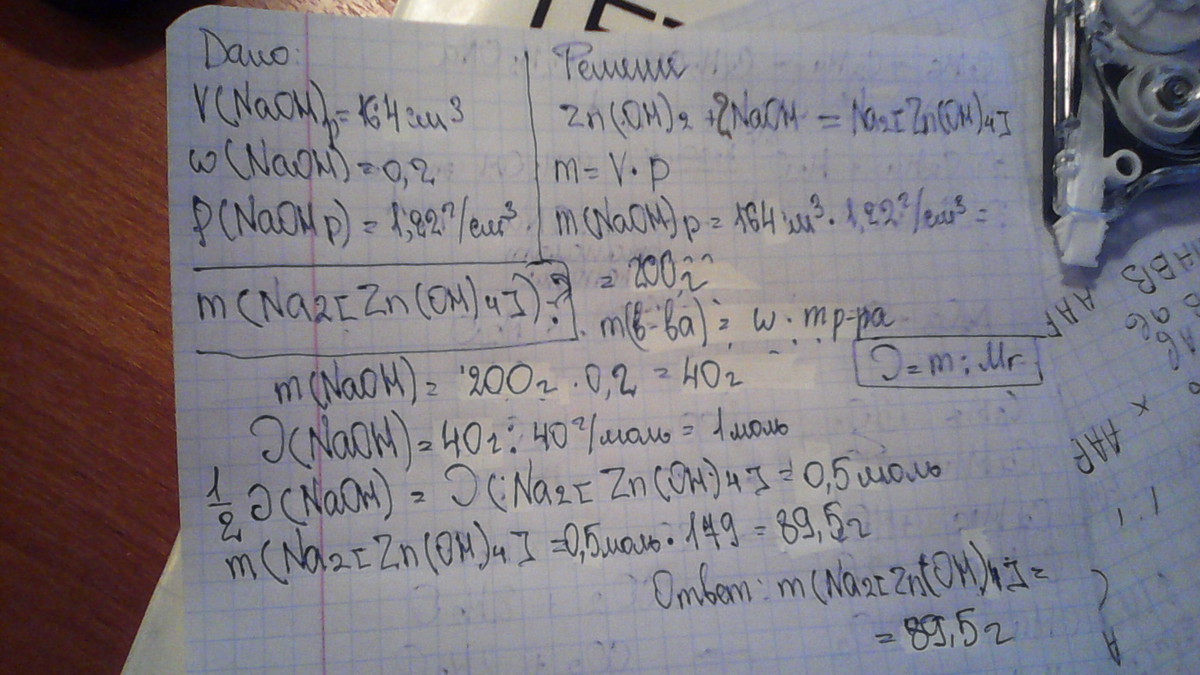 Дано:
V(NaOH)р = 164 см³
ω(NaOH) = 0,2
ρ(NaOH р) = 1,22 г/см³
m(Na2[Zn(OH)4]) - ?
Решение
Zn(OH)2 + 2NaOH = Na2[Zn(OH)4]
m = V · ρ
m(NaOH)р = 164 см³ · 1,22 г/см³ =
= 200 г
m(в-ва) = ω · mр-ра
ν = m : Mr
m(NaOH) = 200 г · 0,2 = 40 г
ν(NaOH) = 40 г : 40 г/моль = 1 моль
1/2 ν(NaOH) = ν(Na2[Zn(OH)4] = 0,5 моль
m(Na2[Zn(OH)4] = 0,5 моль · 179 = 89,5 г
Ответ: m(Na2[Zn(OH)4] =
= 89,5 г
AAF
AAP